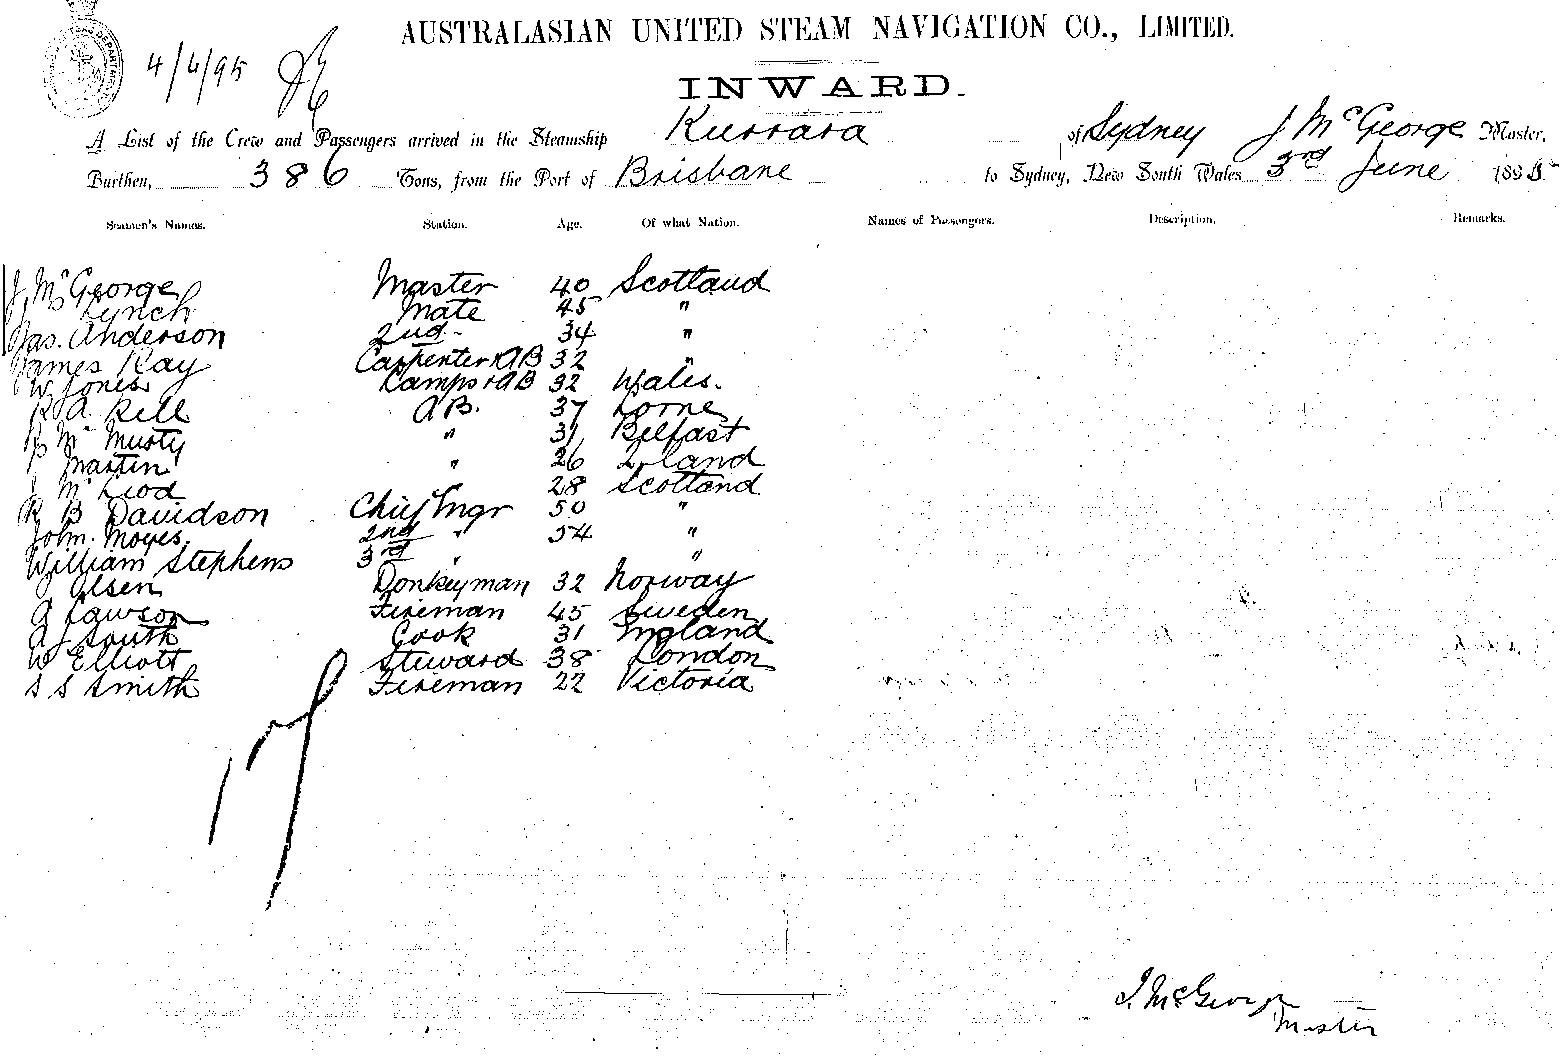 AUSTRALASIAN UNITED STEAM NAVIGATION CO., LIMITED.
4/4/95
INWARD.
A List of the Crew and Passengers arrived in the Steamship Kurrara of Sydney J McGeorge Master,
Burthen, 386 Tons, from the Port of Brisbane to Sydney, New South Wales 3rd June 1895
Seamen's Names. Station. Age. Of what Nation. Names of Passengers. Description. Remarks.
J McGeorge Master 40 Scotland
Lynch Mate 45 "
Jas. Anderson 2nd 34 "
James Kay Carpenter & AB 32 "
W Jones Lamps & AB 32 Wales.
R A Kell AB. 37 Lorne
Mc Musty " 31 Belfast
Martin " 26 Ireland
Mc Liod " 28 Scotland
R B Davidson Chief Engr 50 "
John Moyes 2nd " 54 "
William Stephens 3rd " "
J Olsen Donkeyman 32 Norway
A Lawson Fireman 45 Sweden
A J South Cook 31 England
W Elliott Steward 38 London
S S Smith Fireman 22 Victoria
17
J. McGeorge
Master